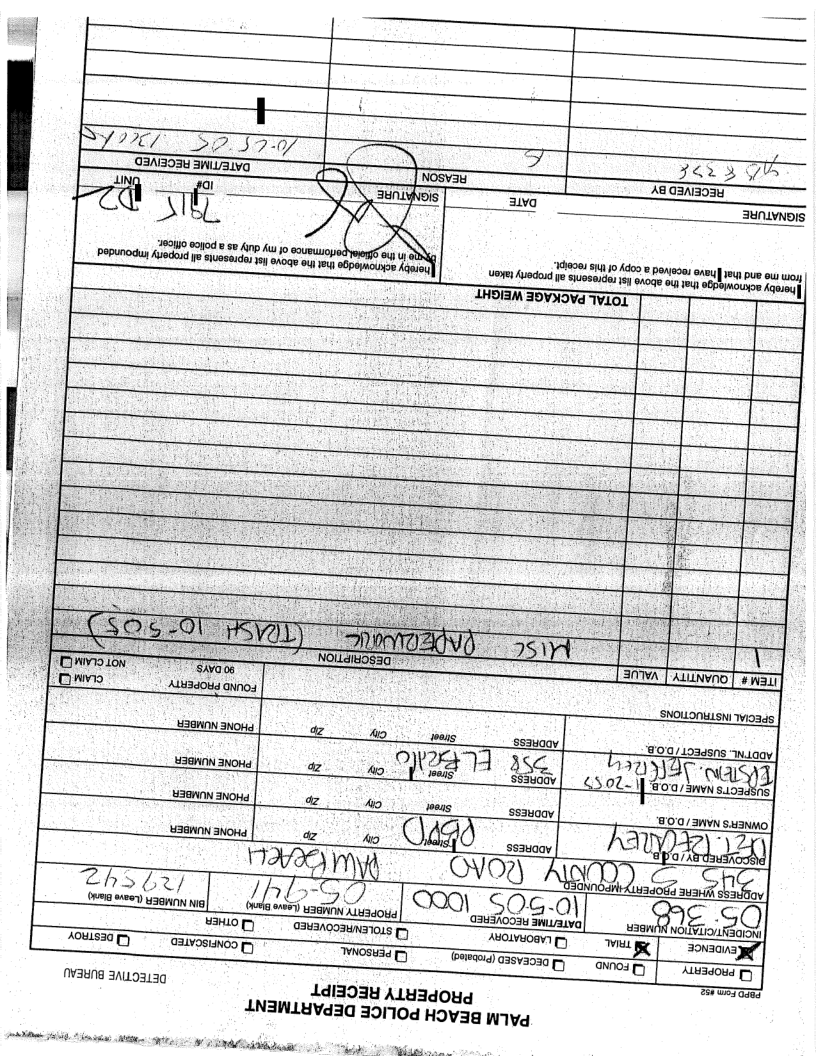 PALM BEACH POLICE DEPARTMENT
PROPERTY RECEIPT
PBPD Form #52
DETECTIVE BUREAU
PROPERTY FOUND DECEASED (Probated) PERSONAL CONFISCATED DESTROY
EVIDENCE TRIAL LABORATORY STOLEN/RECOVERED OTHER
INCIDENT/CITATION NUMBER DATE/TIME RECOVERED PROPERTY NUMBER (Leave Blank) BIN NUMBER (Leave Blank)
05-368 10-5-05 1000 05-941 129542
ADDRESS WHERE PROPERTY IMPOUNDED
345 S COUNTY ROAD PALM BEACH
DISCOVERED BY / D.O.B. ADDRESS Street City Zip PHONE NUMBER
DET. PBPD
OWNERS NAME / D.O.B. ADDRESS Street City Zip PHONE NUMBER
SUSPECT'S NAME / D.O.B. ADDRESS Street City Zip PHONE NUMBER
EPSTEIN, JEFFREY 358 EL BRILLO
ADDTNL. SUSPECT / D.O.B. ADDRESS Street City Zip PHONE NUMBER
SPECIAL INSTRUCTIONS
FOUND PROPERTY CLAIM
90 DAYS NOT CLAIM
ITEM # QUANTITY VALUE DESCRIPTION
1 MISC PAPERWORK (TRASH 10-5-05)
TOTAL PACKAGE WEIGHT
I hereby acknowledge that the above list represents all property taken
from me and that I have received a copy of this receipt.
I hereby acknowledge that the above list represents all property impounded
by me in the official performance of my duty as a police officer.
SIGNATURE DATE
SIGNATURE ID# UNIT
7915 D22
RECEIVED BY REASON DATE/TIME RECEIVED